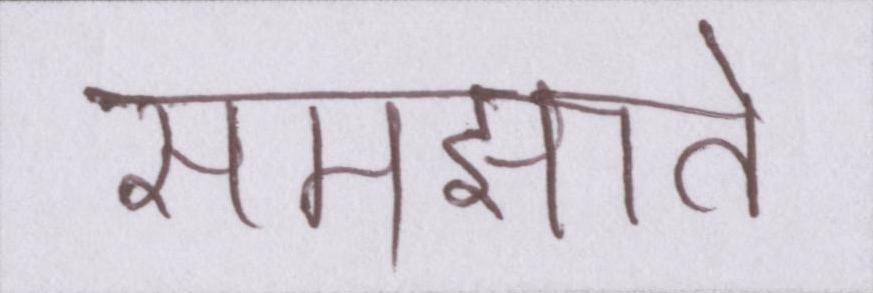 समझाते